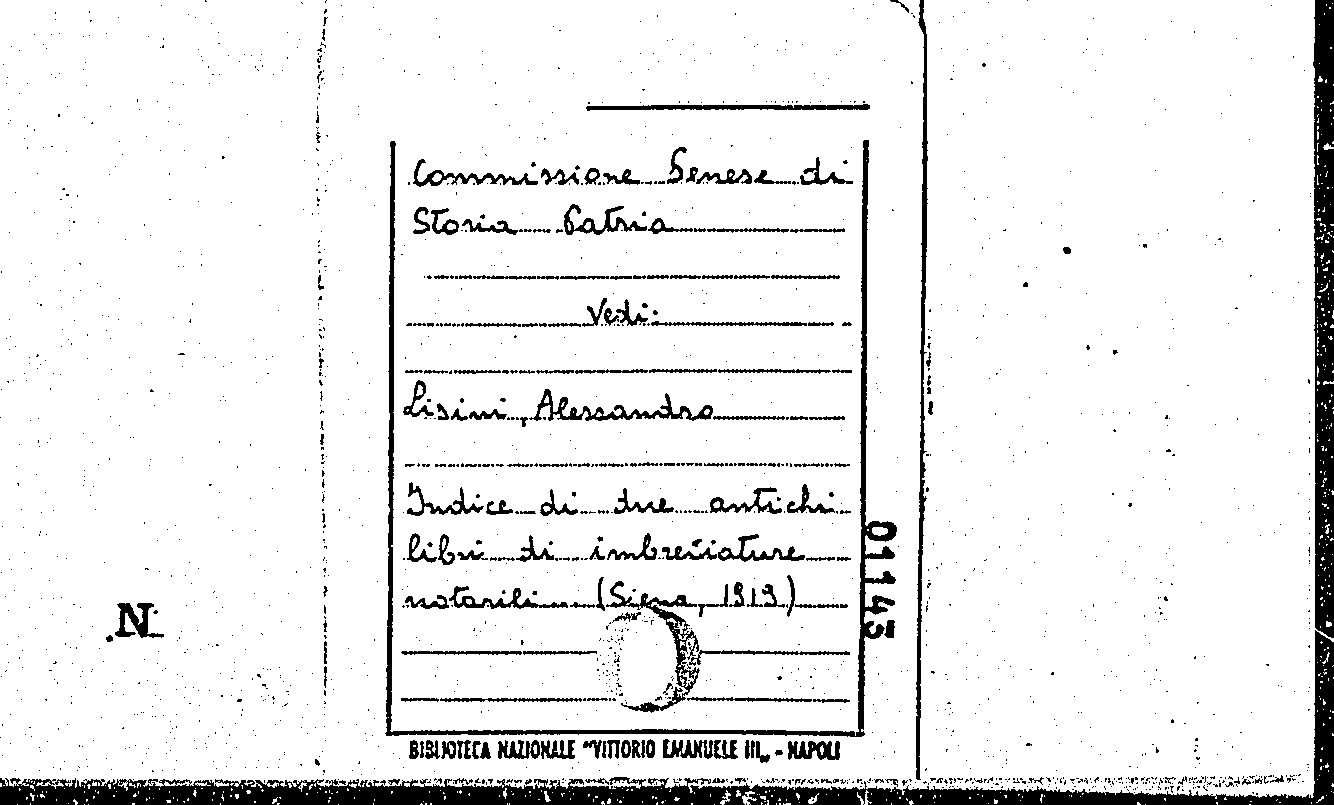 Commissione Senese di
Storia Patria
Vedi:
Lisini, Alessandro
Indice di due antichi
libri di imbreviature
notarili... (Siena, 1913)
01143
.N.
BIBLIOTECA NAZIONALE "VITTORIO EMANUELE III„ - NAPOLI